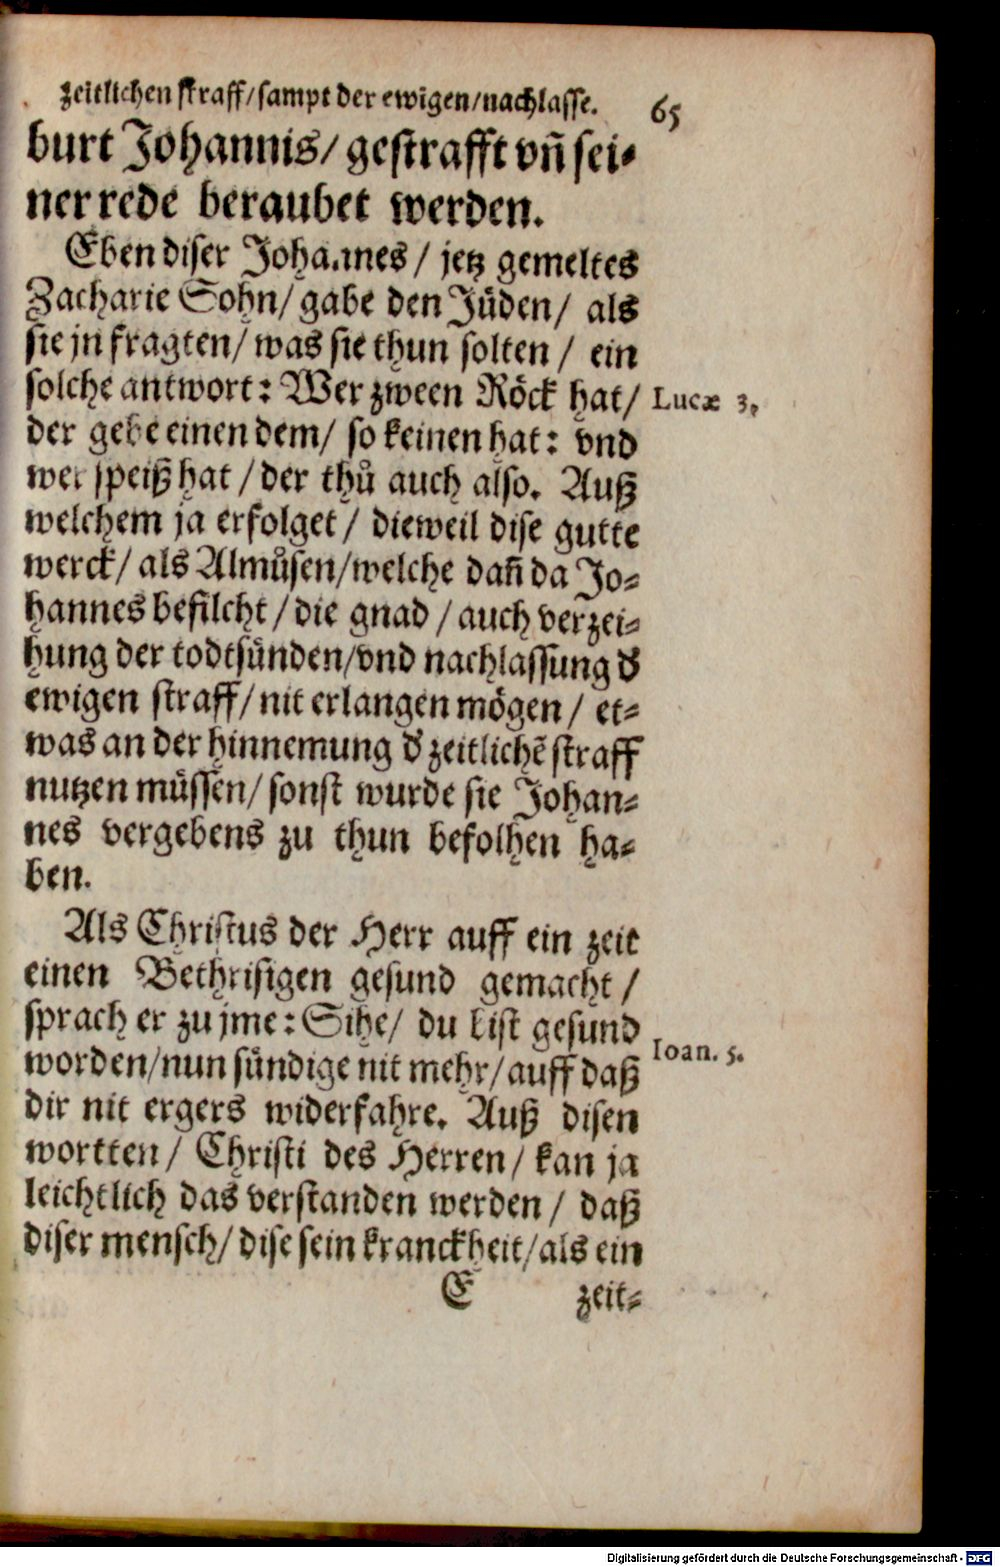 zeitlichen straff/sampt der ewigen/nachlasse. 65
burt Johannis/ gestrafft vñ sei-
ner rede beraubet werden.
Eben diser Johannes/ jetz gemeltes
Zacharie Sohn/ gabe den Jüden/ als
sie jn fragten/ was sie thun solten/ ein
solche antwort: Wer zween Röck hat/
Lucæ 3,
der gebe einen dem/ so keinen hat: vnd
wer speiß hat/ der thů auch also. Auß
welchem ja erfolget/ dieweil dise gutte
werck/ als Almůsen/welche dañ da Jo-
hannes befilcht/ die gnad/ auch verzei-
hung der todtsünden/vnd nachlassung d̕
ewigen straff/ nit erlangen mögen/ et-
was an der hinnemung d̕ zeitlichẽ straff
nutzen müssen/ sonst wurde sie Johan-
nes vergebens zu thun befolhen ha-
ben.
Als Christus der Herr auff ein zeit
einen Bethrisigen gesund gemacht/
sprach er zu jme: Sihe/ du bist gesund
worden/nun sündige nit mehr/ auff daß
Ioan. 5.
dir nit ergers widerfahre. Auß disen
wortten/ Christi des Herren/ kan ja
leichtlich das verstanden werden/ daß
diser mensch/ dise sein kranckheit/als ein
E zeit-
Digitalisierung gefördert durch die Deutsche Forschungsgemeinschaft - DFG